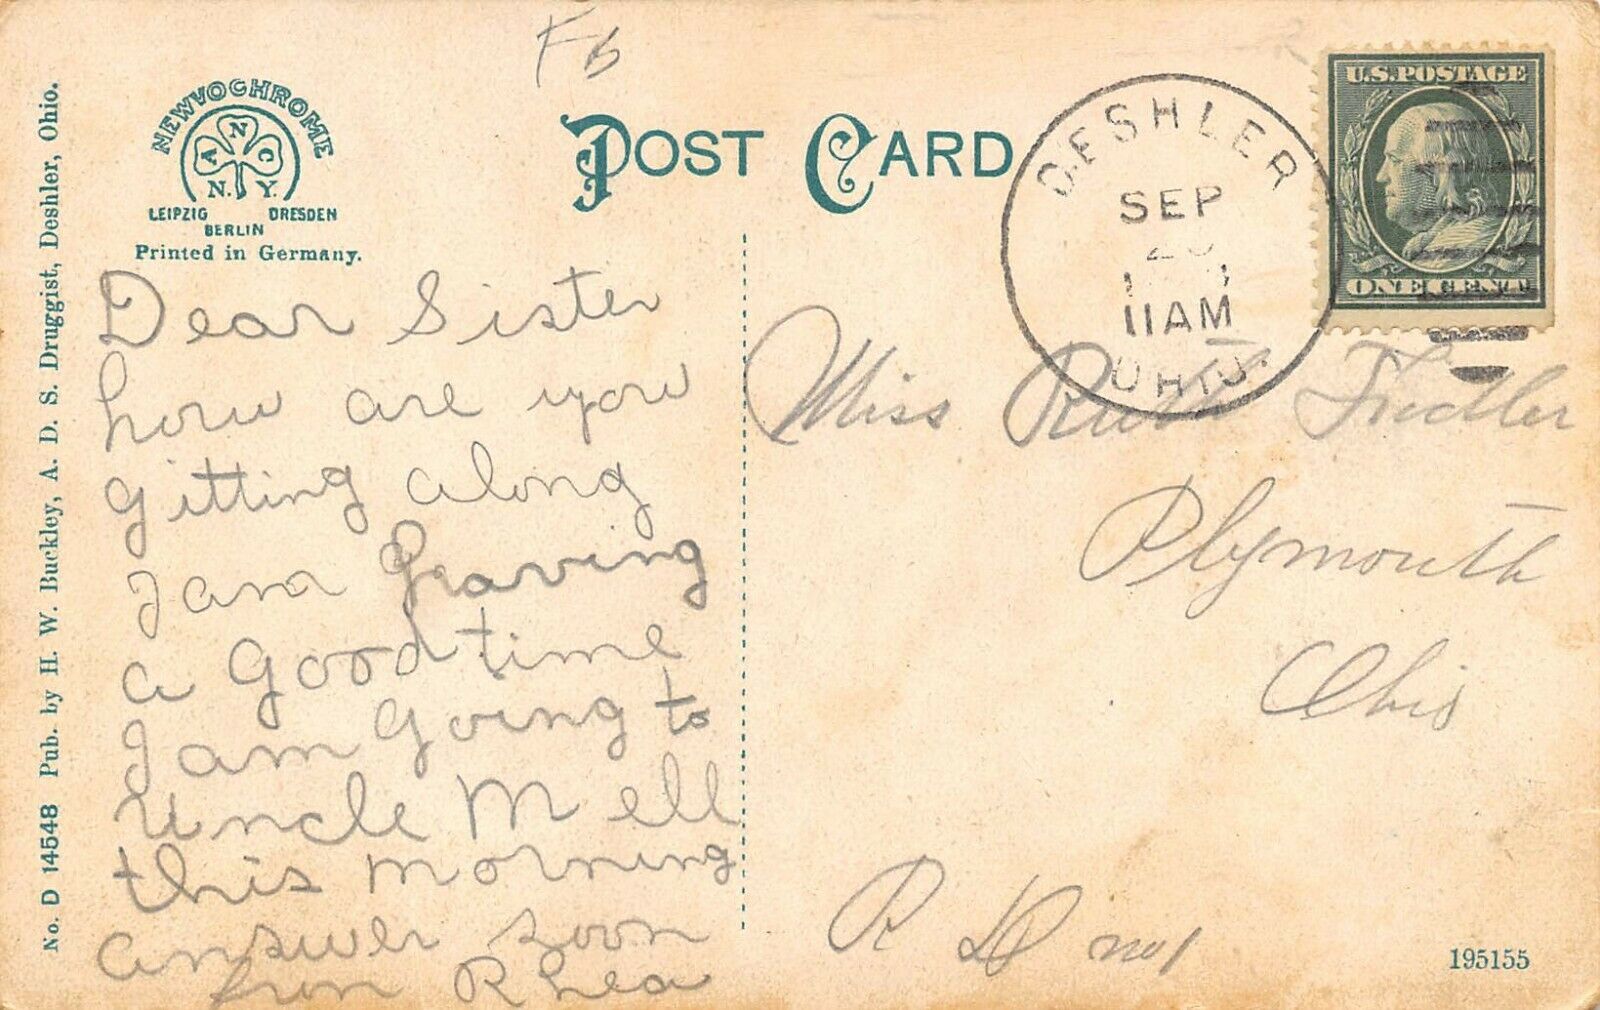 Fb
NEWVOCHROME
A N C
N. Y.
LEIPZIG DRESDEN
BERLIN
Printed in Germany.
POST CARD
DESHLER
SEP
11 AM
OHIO.
U.S. POSTAGE
ONE CENT
No. D 14548 Pub. by H. W. Buckley, A. D. S. Druggist, Deshler, Ohio.
Dear Sister
how are you
gitting along
I am heaving
a good time
I am going to
Uncle Mell
this morning
answer soon
from Rhea
Miss Ruth Fiedler
Plymouth
Ohio
R D no 1
195155